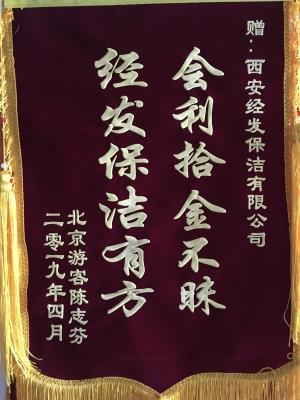 赠：西安经发保洁有限公司
会利拾金不昧
经发保洁有方
北京游客陈志芬
二零一九年四月